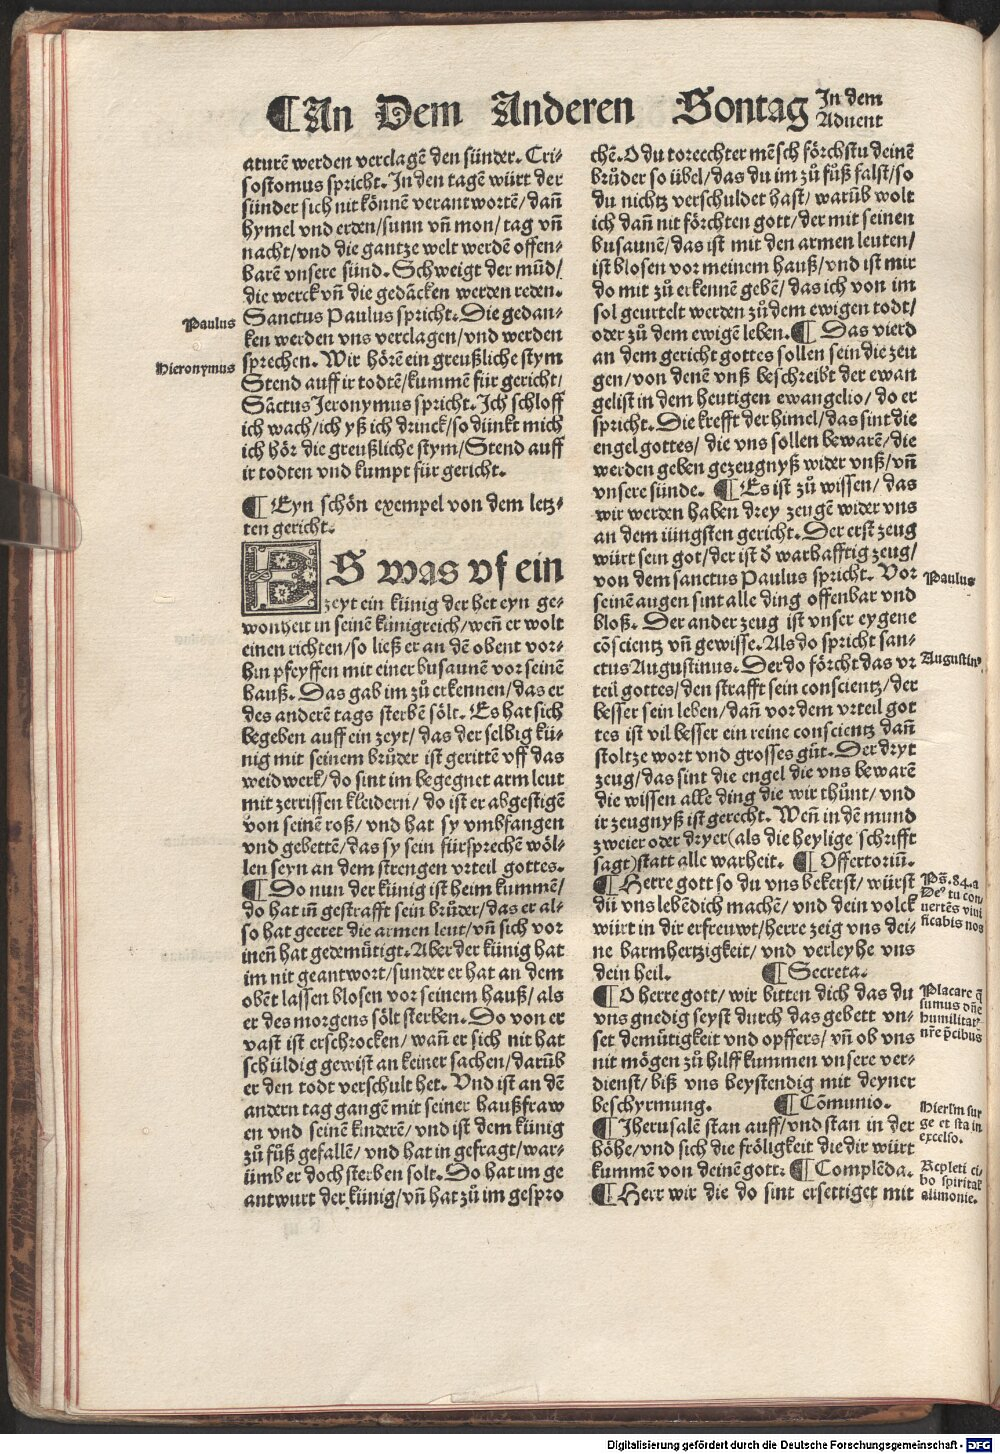 ¶An Dem Anderen Sontag In dem
Aduent
aturē werden verclagē den sünder. Cri-
sostomus spricht. In den tagē würt der
sünder sich nit könnē verantwortē/ dañ
hymel vnd erden/sunn vñ mon/ tag vñ
nacht/vnd die gantze welt werdē offen-
barē vnsere sünd. Schweigt der mūd/
die werck vñ die gedācken werden reden.
Paulus
Sanctus Paulus spricht. Die gedan-
ken werden vns verclagen/vnd werden
Hieronymus
sprechen. Wir hörē ein greußliche stym
Stend auff ir todtē/kummē für gericht/
Sāctus Jeronymus spricht. Ich schloff
ich wach/ich yß ich drinck/so dünkt mich
ich hör die greußliche stym/Stend auff
ir todten vnd kumpt für gericht.
¶ Eyn schön exempel von dem letz-
ten gericht.
ES was vf ein
zeyt ein künig der het eyn ge-
wonheit in seinē künigreich/weñ er wolt
einen richten/so ließ er an dē obent vor-
hin pfeyffen mit einer busaunē vor seinē
hauß. Das gab im zů erkennen/das er
des anderē tags sterbē sölt. Es hat sich
begeben auff ein zeyt/ das der selbig kü-
nig mit seinem brůder ist gerittē vff das
weidwerk/do sint im begegnet arm leut
mit zerrissen kleidern/ do ist er abgestigē
von seinē roß/ vnd hat sy vmbfangen
vnd gebettē/das sy sein fürsprechē wöl-
len seyn an dem strengen vrteil gottes.
¶ Do nun der künig ist heim kummē/
do hat iñ gestrafft sein brůder/das er al-
so hat geeret die armen leut/vñ sich vor
ineñ hat gedemütigt. Aber der künig hat
im nit geantwort/sunder er hat an dem
obēt lassen blosen vor seinem hauß/ als
er des morgens sölt sterben. Do von er
vast ist erschrocken/ wañ er sich nit hat
schüldig gewist an keiner sachen/darüb
er den todt verschult het. Vnd ist an dē
andern tag gangē mit seiner haußfraw
en vnd seinē kinderē/ vnd ist dem künig
zů fůß gefallē/ vnd hat in gefragt/war-
ümb er doch sterben solt. Do hat im ge
antwurt der künig/vñ hat zů im gespro
chē. O du toreechter mēsch förchstu deinē
brůder so übel/das du im zů fůß falst/so
du nichtz verschuldet hast/ warūb wolt
ich dañ nit förchten gott/der mit seinen
busaunē/das ist mit den armen leuten/
ist blosen vor meinem hauß/vnd ist mir
do mit zů erkennē gebē/das ich von im
sol geurtelt werden zů dem ewigen todt/
oder zů dem ewigē leben. ¶ Das vierd
an dem gericht gottes sollen sein die zeu
gen/von denē vnß beschreibt der ewan
gelist in dem heutigen ewangelio/ do er
spricht. Die krefft der himel/das sint die
engel gottes/ die vns sollen bewarē/die
werden geben gezeugnyß wider vnß/vñ
vnsere sünde. ¶ Es ist zů wissen/ das
wir werden haben drey zeugē wider vns
an dem iüngsten gericht. Der erst zeug
würt sein got/der ist d warhafftig zeug/
von dem sanctus Paulus spricht. Vor
Paulus
seinē augen sint alle ding offenbar vnd
bloß. Der ander zeug ist vnser eygene
cōscientz vñ gewisse. Als do spricht san-
ctus Augustinus. Der do förcht das vr
Augustin⁹
teil gottes/den strafft sein conscientz/der
besser sein leben/dañ vor dem vrteil got
tes ist vil besser ein reine conscientz dañ
stoltze wort vnd grosses gůt. Der dryt
zeug/das sint die engel die vns bewarē
die wissen alle ding die wir thůnt/ vnd
ir zeugnyß ist gerecht. Weñ in dē mund
zweier oder dryer(als die heylige schrifft
sagt)statt alle warheit. ¶ Offertoriū.
¶ Herre gott so du vns bekerst/ würst
dü vns lebēdich machē/ vnd dein volck
würt in dir erfreuwt/herre zeig vns dei-
ne barmhertzigkeit/ vnd verleyhe vns
dein heil. ¶ Secreta.
Ps̄. 84. a
De⁹ tu con-
uertēs viui
ficabis nos
¶ O herre gott/ wir bitten dich das du
vns gnedig seyst durch das gebett vn-
ser demütigkeit vnd opffers/ vñ ob vns
nit mögen zů hilff kummen vnsere ver-
dienst/ biß vns beystendig mit deyner
beschyrmung. ¶ Cōmunio.
Placare q̄
sumus dn̄e
humilitat̄
nr̄e p̄cibus
¶ Jherusalē stan auff/vnd stan in der
höhe/vnd sich die fröligkeit die dir würt
kummē von deinē gott: ¶ Complēda.
Hierlm̄ sur
ge et sta in
excelso.
¶ Herr wir die do sint ersettiget mit
Repleti ci-
bo spiritat
alimonie.
Digitalisierung gefördert durch die Deutsche Forschungsgemeinschaft - DFG